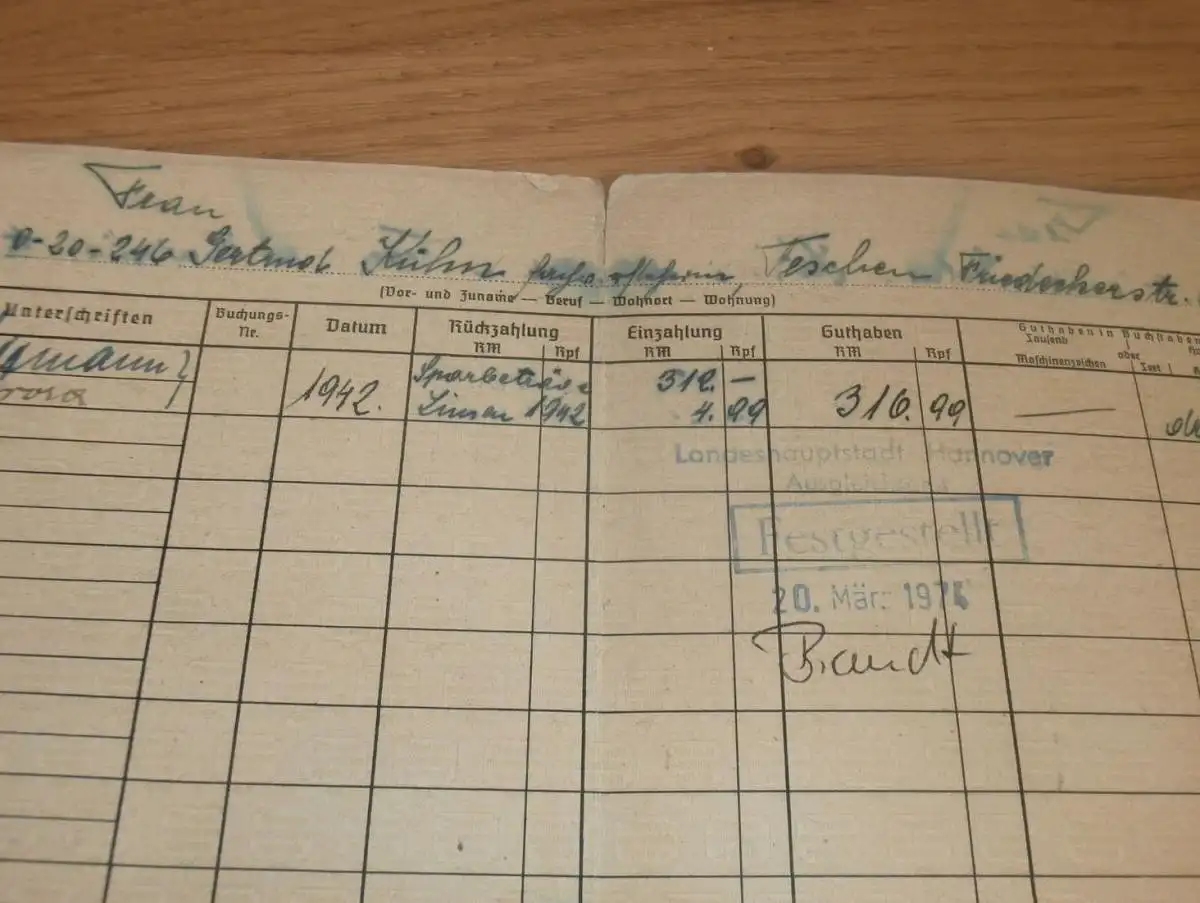 Frau
0-20-246 Gertrud Kühn Teschen Friedeckerstr.
(Vor- und Zuname — Beruf — Wohnort — Wohnung)
Unterschriften Buchungs-Nr. Datum Rückzahlung RM Rpf Einzahlung RM Rpf Guthaben RM Rpf Guthaben in Buchstaben Tausend oder Maschinenzeichen
1942. Sparbeträge 312. — 316. 99 —
Zinsen 1942 4. 99
Landeshauptstadt Hannover
Ausgleichsamt
Festgestellt
20. März 197
Brandt